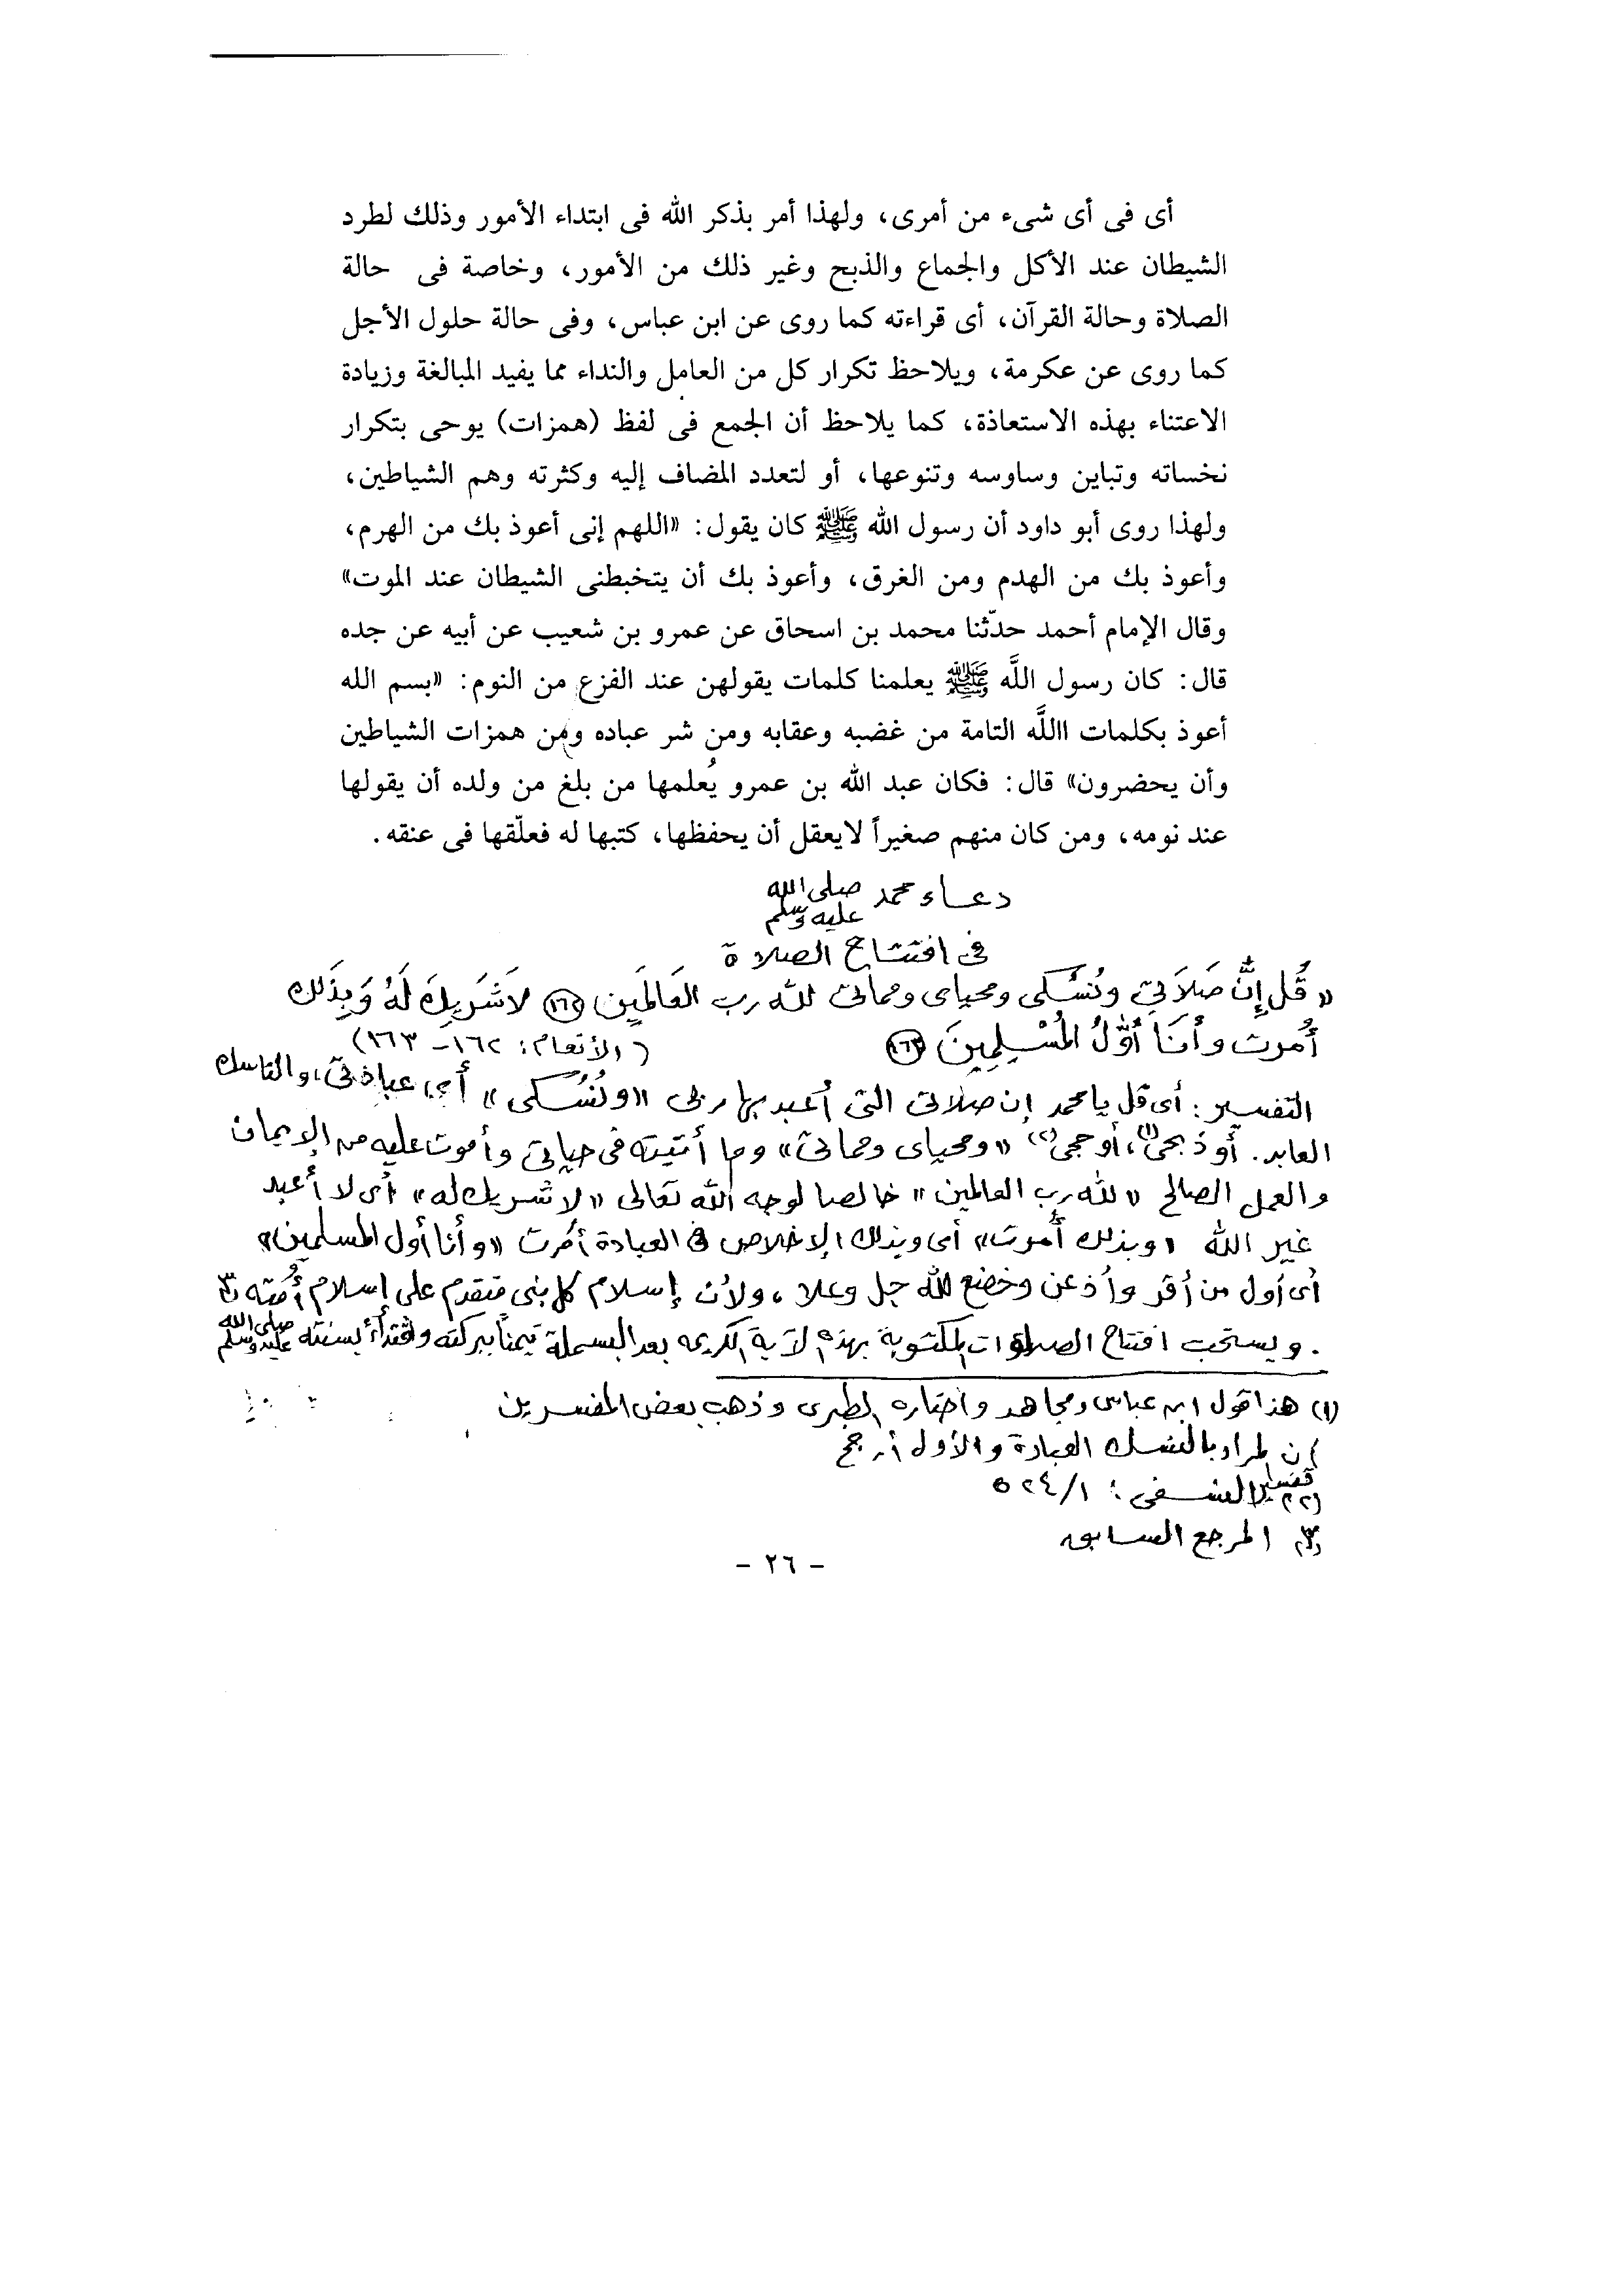 أى فى أى شىء من أمرى، ولهذا أمر بذكر الله فى ابتداء الأمور وذلك لطرد
الشيطان عند الأكل والجماع والذبح وغير ذلك من الأمور، وخاصة فى حالة
الصلاة وحالة القرآن، أى قراءته كما روى عن ابن عباس، وفى حالة حلول الأجل
كما روى عن عكرمة، ويلاحظ تكرار كل من العامل والنداء مما يفيد المبالغة وزيادة
الاعتناء بهذه الاستعاذة، كما يلاحظ أن الجمع فى لفظ (همزات) يوحى بتكرار
نخساته وتباين وساوسه وتنوعها، أو لتعدد المضاف إليه وكثرته وهم الشياطين،
ولهذا روى أبو داود أن رسول الله ﷺ كان يقول: «اللهم إنى أعوذ بك من الهرم،
وأعوذ بك من الهدم ومن الغرق، وأعوذ بك أن يتخبطنى الشيطان عند الموت»
وقال الإمام أحمد حدّثنا محمد بن اسحاق عن عمرو بن شعيب عن أبيه عن جده
قال: كان رسول اللَّه ﷺ يعلمنا كلمات يقولهن عند الفزع من النوم: «بسم الله
أعوذ بكلمات االلَّه التامة من غضبه وعقابه ومن شر عباده ومن همزات الشياطين
وأن يحضرون» قال: فكان عبد الله بن عمرو يُعلمها من بلغ من ولده أن يقولها
عند نومه، ومن كان منهم صغيراً لايعقل أن يحفظها، كتبها له فعلّقها فى عنقه.
دعاء محمد صلى الله عليه وسلم
فى افتتاح الصلاة
«قُل إِنَّ صَلَاتِي ونُسُكى ومحياى ومماتى لله رب العَالمَين (١٦٢) لاَ شَرِيكَ لَهُ وَبِذَلك
أُمرت وأَنَا أوَّلُ المُسْلِمِينَ (١٦٣) (الأنعام: ١٦٢ - ١٦٣)
التفسير: أى قل يا محمد إن صلاتى التى أعبد بها ربى «ونُسُكى» أى عبادتى، والناسك
العابد. أو ذبحى (١)، أو حجى (٢) «ومحياى ومماتى» وما أتيته فى حياتى وأموت عليه من الإيمان
والعمل الصالح «لله رب العالمين» خالصا لوجه الله تعالى «لا شريك له» أى لا أعبد
غير الله «وبذلك أُمرت» أى وبذلك الإخلاص فى العبادة أمرت «وأنا أول المسلمين»
أى أول من أقر وأذعن وخضع لله جل وعلا، ولأن إسلام كل نبى متقدم على إسلام أُمته (٣)
. ويستحب افتتاح الصلوات المكتوبة بهذه الآية الكريمه بعد البسملة تيمناً ببركته واقتداءً بسنته صلى الله عليه وسلم
(١) هذا قول ابن عباس ومجاهد واختاره الطبرى وذهب بعض المفسرين
إن المراد بالنسك العبادة والأول أرجح
(٢) تفسير النسفى: ١/ ٥٢٤
(٣) المرجع السابق
- ٢٦ -